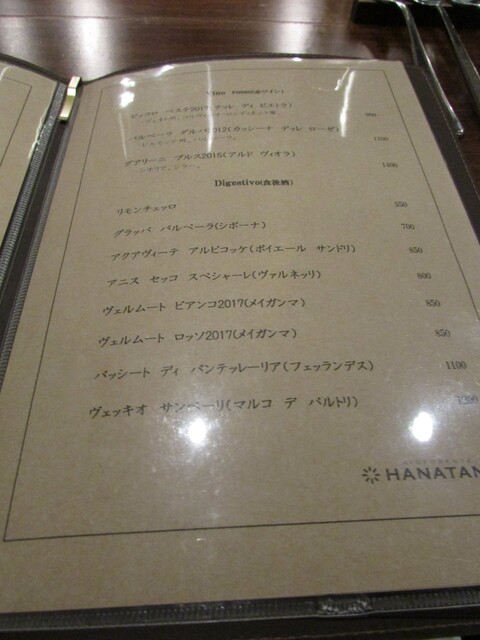 Vino rosso(赤ワイン)
2017(テッレ ディ ピエトラ)
バルベーラ ダルバ2012(カッシーナ デッレ ローゼ) 1100
グアリーニ プルス2015(アルド ヴィオラ) 1400
シチリア、シラー。
Digestivo(食後酒)
リモンチェッロ 550
グラッパ バルベーラ(シボーナ) 700
アクアヴィーテ アルビコッケ(ポイエール サンドリ) 850
アニス セッコ スペシャーレ(ヴァルネッリ) 800
ヴェルムート ビアンコ2017(メイガンマ) 850
ヴェルムート ロッソ2017(メイガンマ) 850
パッシート ディ パンテッレーリア(フェッランデス) 1100
ヴェッキオ サンペーリ(マルコ デ バルトリ) 1200
RISTORANTE
HANATAN